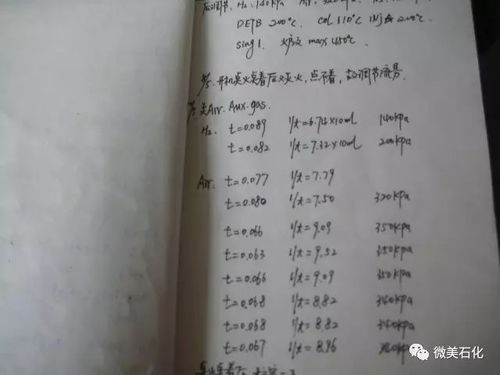 后调节. H₂. 140kPa Air.
DETB 200℃. Col 110℃ INJ 200℃.
Sing 1. 炉文 max 450℃.
开机点火点着后又灭火, 点不着, 故调节流量.
关 Air. Aux. gas.
H₂. t=0.089 1/t=6.74×10ml 140kPa
t=0.082 1/t=7.32×10ml 200kPa
Air. t=0.077 1/t=7.79
t=0.080 1/t=7.50 320kPa
t=0.066 1/t=9.09 350kPa
t=0.063 1/t=9.52 350kPa
t=0.066 1/t=9.09 350kPa
t=0.068 1/t=8.82 340kPa
t=0.068 1/t=8.82 340kPa
t=0.067 1/t=8.96
微美石化